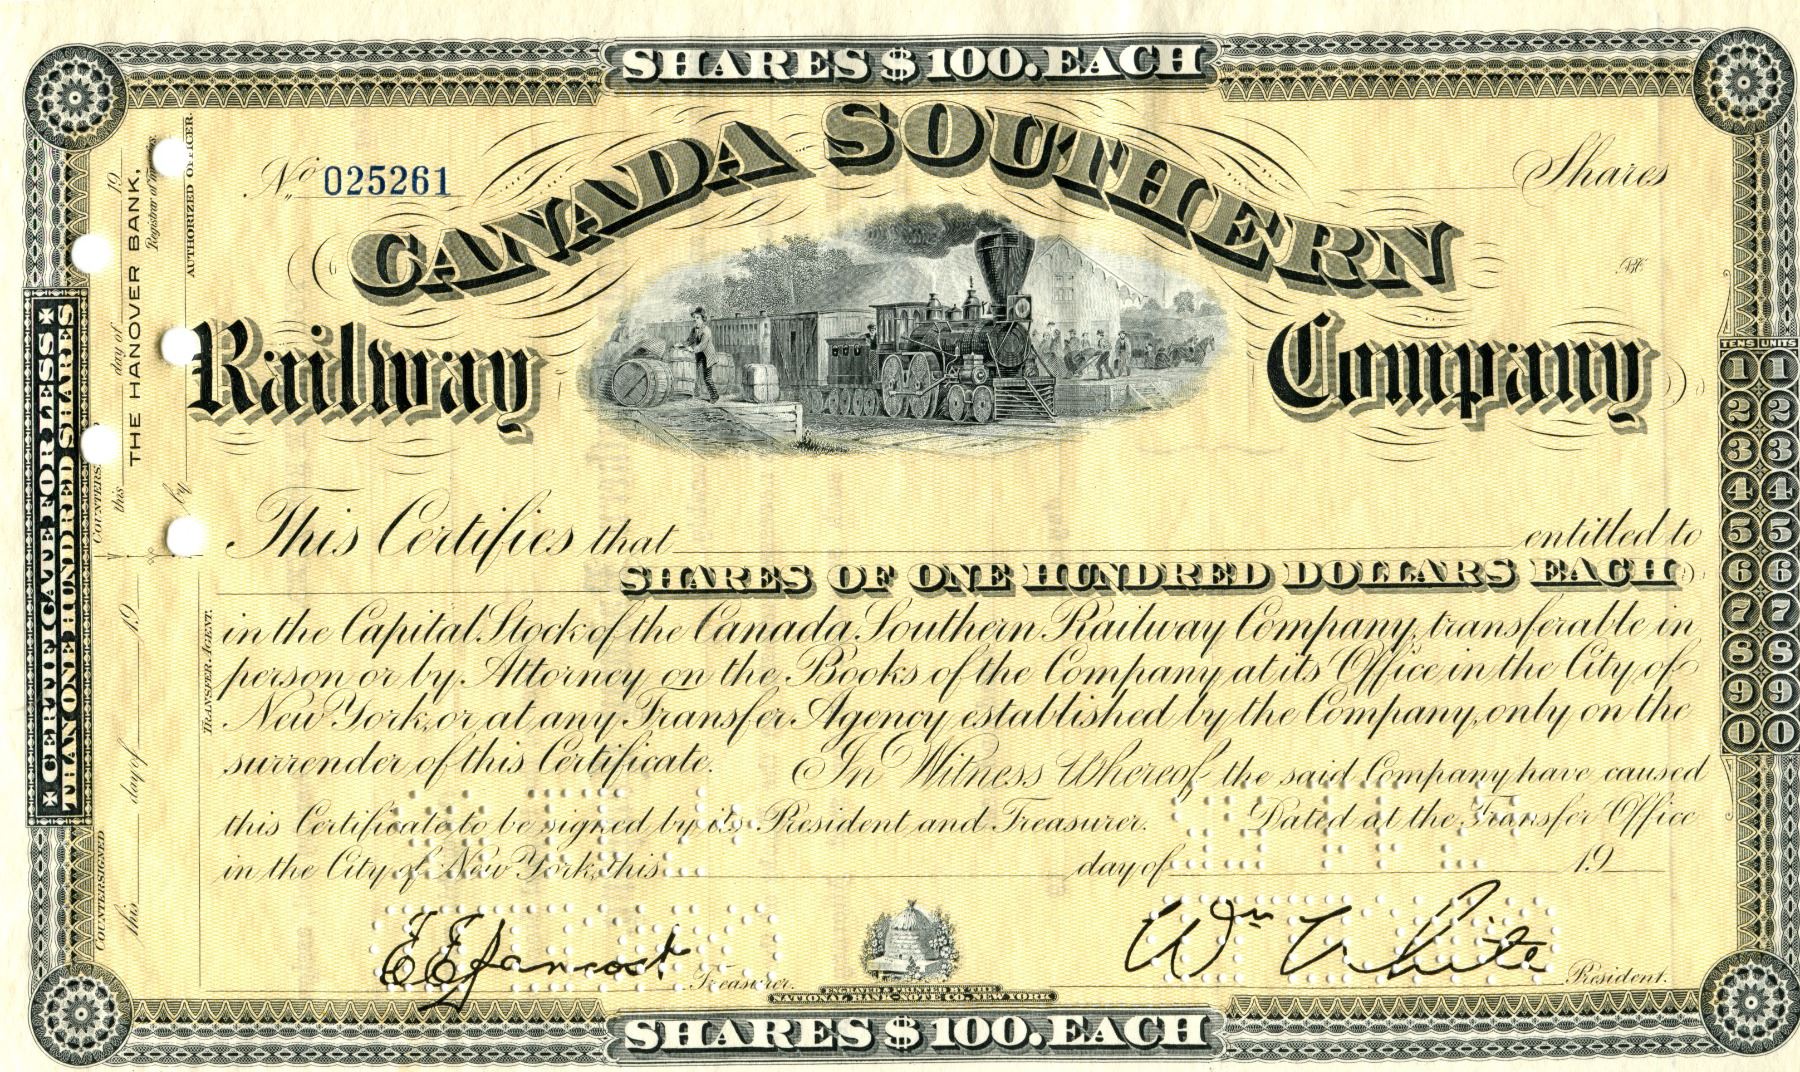 SHARES $100. EACH
No 025261
Shares
CANADA SOUTHERN
Railway Company
This Certifies that entitled to
SHARES OF ONE HUNDRED DOLLARS EACH
in the Capital Stock of the Canada Southern Railway Company, transferable in
person or by Attorney on the Books of the Company at its Office in the City of
New York, or at any Transfer Agency established by the Company, only on the
surrender of this Certificate. In Witness Whereof the said Company have caused
this Certificate to be signed by its President and Treasurer. Dated at the Transfer Office
in the City of New York, this day of 19
E E Hancock Treasurer.
Wm White President.
ENGRAVED & PRINTED BY THE
NATIONAL BANK-NOTE CO. NEW YORK
SHARES $100. EACH
CERTIFICATE FOR LESS
THAN ONE HUNDRED SHARES
COUNTERSIGNED
this day of 19
TRANSFER AGENT.
COUNTERS
this day of 19
THE HANOVER BANK,
Registrar of
by
AUTHORIZED OFFICER.
TENS UNITS
1 1
2 2
3 3
4 4
5 5
6 6
7 7
8 8
9 9
0 0